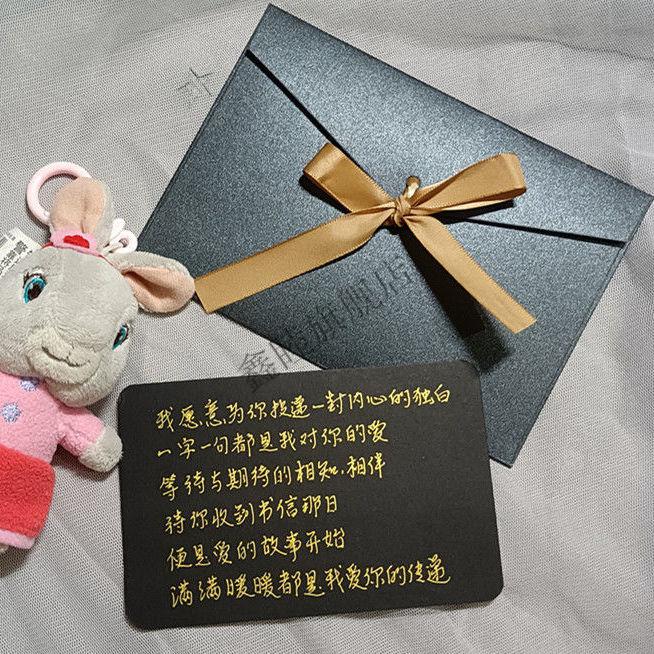 我愿意为你投递一封内心的独白
一字一句都是我对你的爱
等待与期待的相知.相伴
待你收到书信那日
便是爱的故事开始
满满暖暖都是我爱你的传递